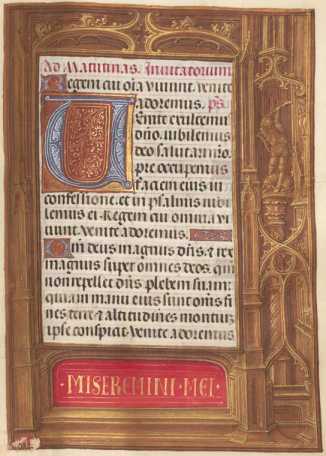 Ad Matutinas. Invitatorium
Regem cui om̄ia vivunt. venite
adoremus. ps.
Venite exultem̄
dn̄o. iubilemus
deo salutari nr̄o.
pre occupemus
faciem eius in
confessione. et in psalmis iubi
lemus ei. Regem cui omnia vi
vunt. venite adoremus.
Qm̄ deus magnus dn̄s. & rex
magnus super omnes deos. qm̄
non repellet dn̄s plebem suam:
quia in manu eius sunt om̄s fi
nes terre & altitudines montium
ipse conspicit. venite adoremus
·MISEREMINI·MEI·